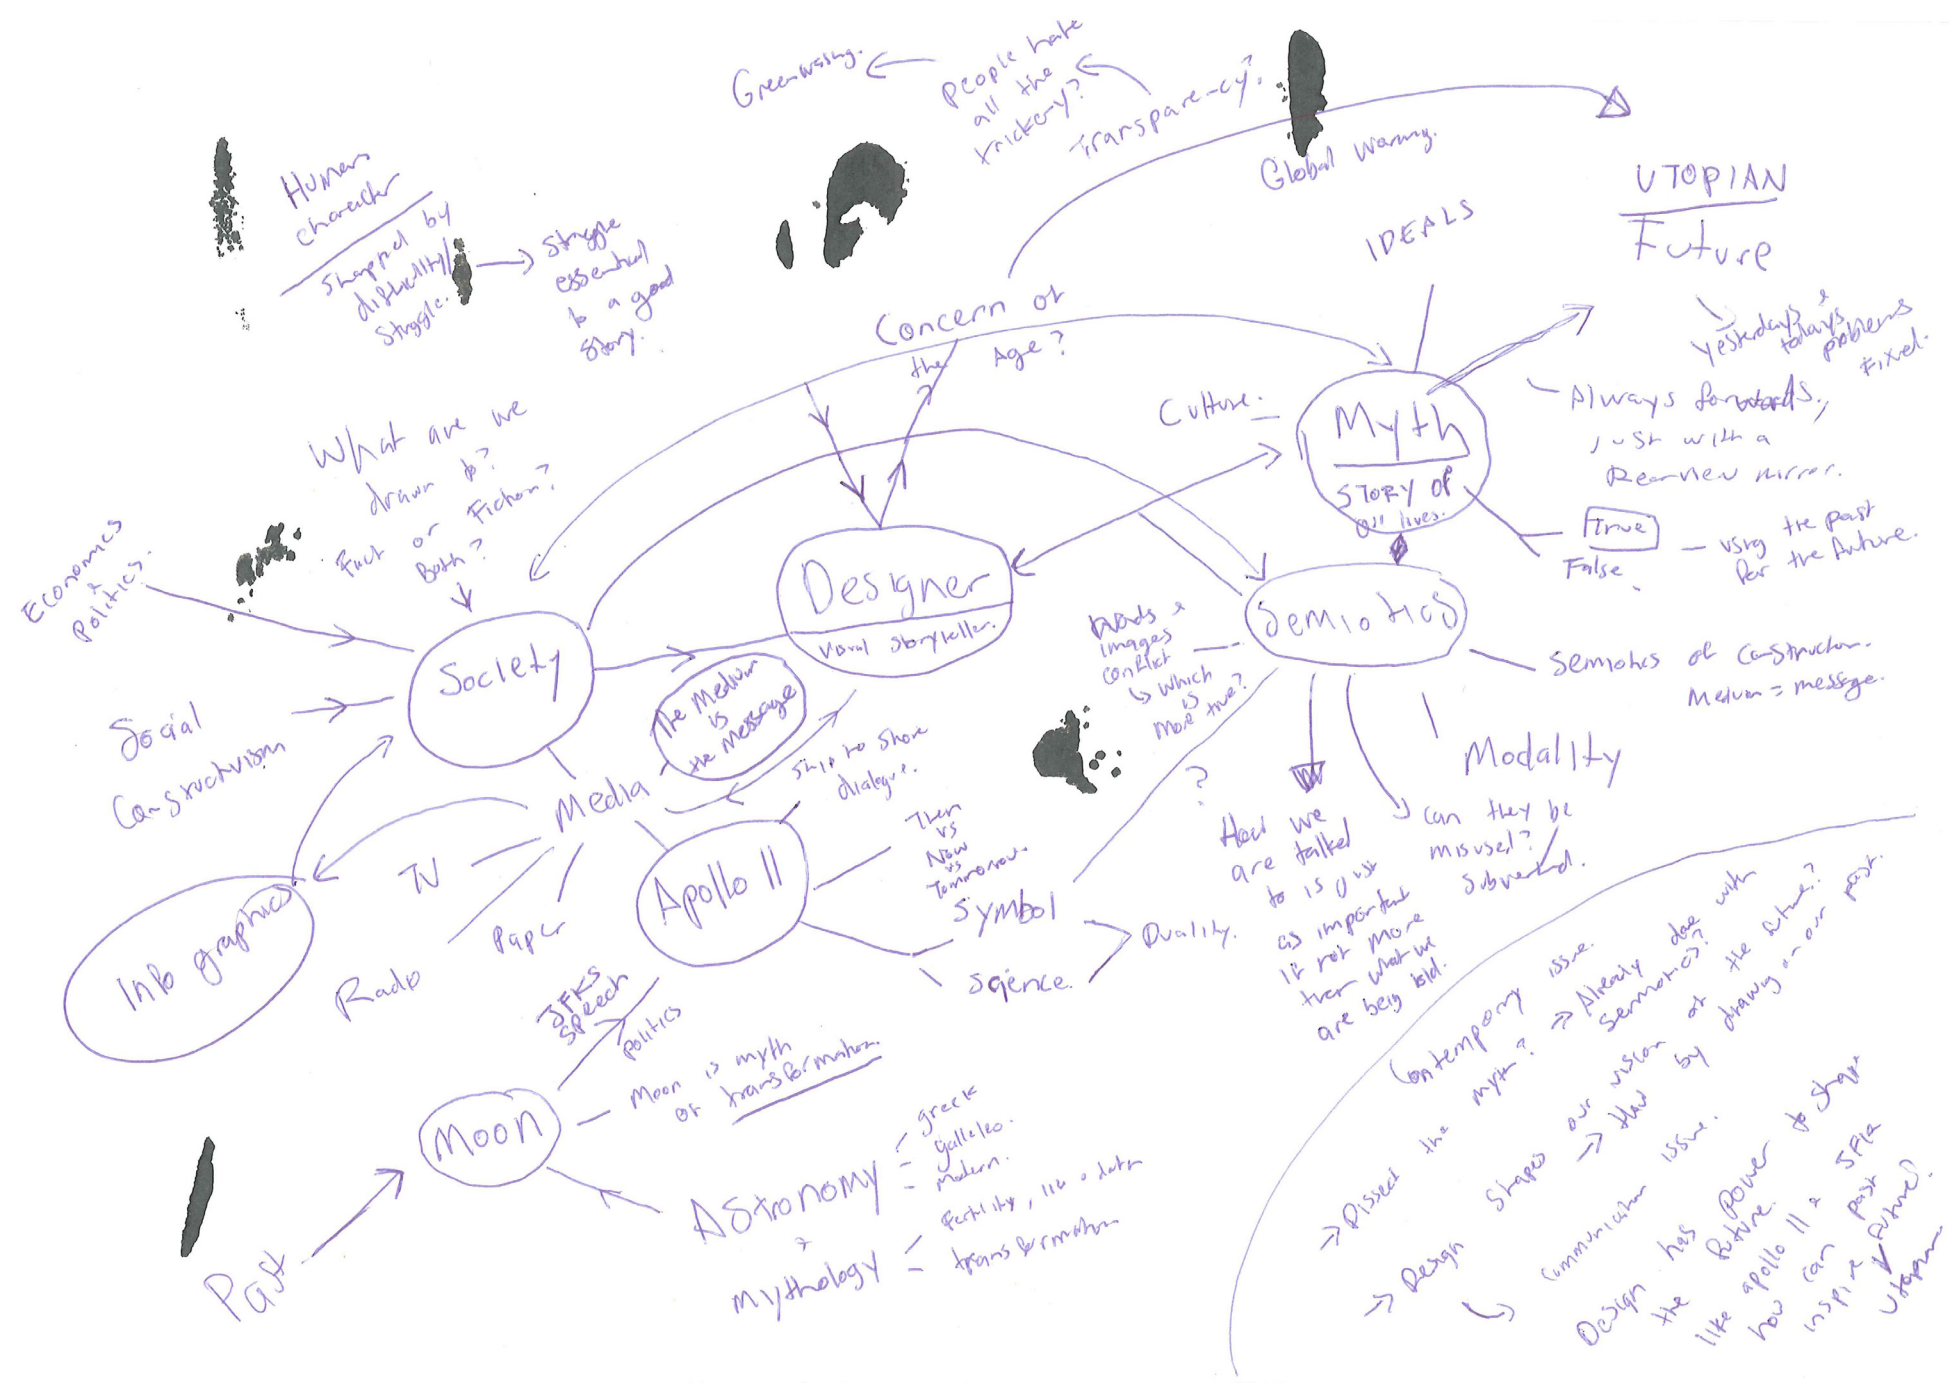 Greenwasing.
People hate
all the
trickery?
Transpare-cy?
Global warming.
UTOPIAN
Future
Yesterdays &
todays
problems
Fixed.
IDEALS
Humans
character
shapped by
difficulty/
struggle.
Struggle
essential
to a good
story.
Concern of
the Age?
Culture.
Myth
STORY OF
our lives.
Always forwards,
just with a
Rearview mirror.
True
False
using the past
for the future.
What are we
drawn to?
Fact or Fiction?
Both?
Economics
&
Politics.
Social
Constructivism
Society
Designer
Visual storyteller.
The Medium
is
the message
Semiotics
Words &
images
conflict
which
is
more true?
Semiotics of construction.
Medium = message.
Modality
Can they be
misused?
Subverted.
?
How we
are talked
to is just
as important
if not more
than what we
are being told.
Media
ship to shore
dialogue.
TV
Paper
Radio
Info graphics
Apollo 11
Then
vs
Now
vs
Tommorrow.
Symbol
Science.
Duality.
JFKS
Speech
politics
Moon
Moon is myth
of transformation.
Past
Astronomy
&
mythology
greek
galleleo.
modern.
Fertility,
transformation
Contemporary issue.
Dissect the myth?
Already done with
semiotics?
Design shapes our vision of the future?
How by drawing on our past.
Communication issue.
Design has power to shape
the future.
like apollo 11 &
how can past
inspire future?
Utopian